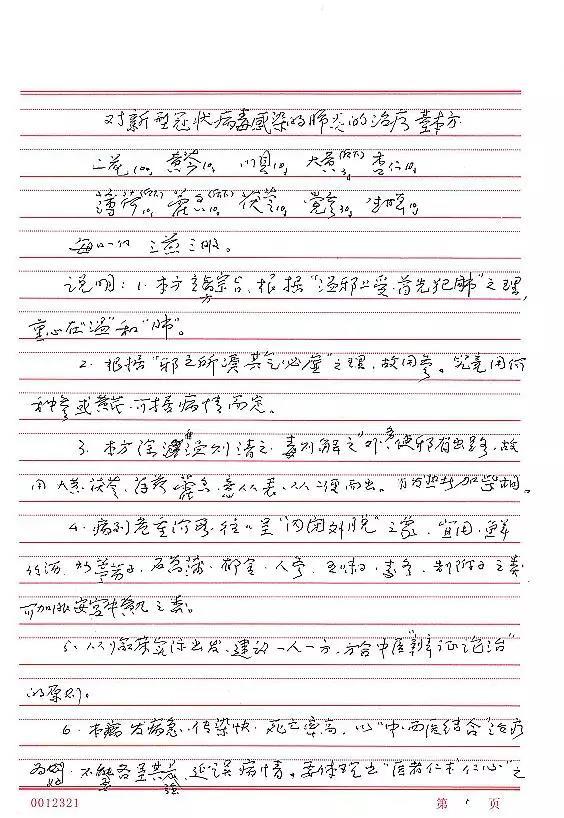 对新型冠状病毒感染的肺炎的治疗基本方
二花10g 黄芩10g 川贝10g 大黄(后下)3g 杏仁10g
薄荷(后下)10g 藿香(后下)10g 茯苓10g 党参30g
每日一付 三煎三服。
说明：1. 本方 根据“温邪上受，首先犯肺”之理，
重心在“温”和“肺”。
2. 根据“邪之所凑其气必虚”之理，故用参。究竟用何
种参或黄芪，可据病情而定。
3. 本方除 则清之，毒则解之”外，使邪有出路，故
用大黄、茯苓、薄荷、藿香，意从表、从二便而出。
4. 病到危重 往往呈“内闭外脱”之象，宜用鲜
石菖蒲、郁金、人参、五味子、麦冬、制附子之类
可加服安宫牛黄丸之类。
5. 从临床实际出发，建议一人一方，方合中医“辨证论治”
的原则。
6. 本病发病急、传染快、死亡率高，以“中西医结合”治疗
为 ，不能各呈其 ，延误病情。要体现出“医者仁术仁心”之
0012321 第 1 页